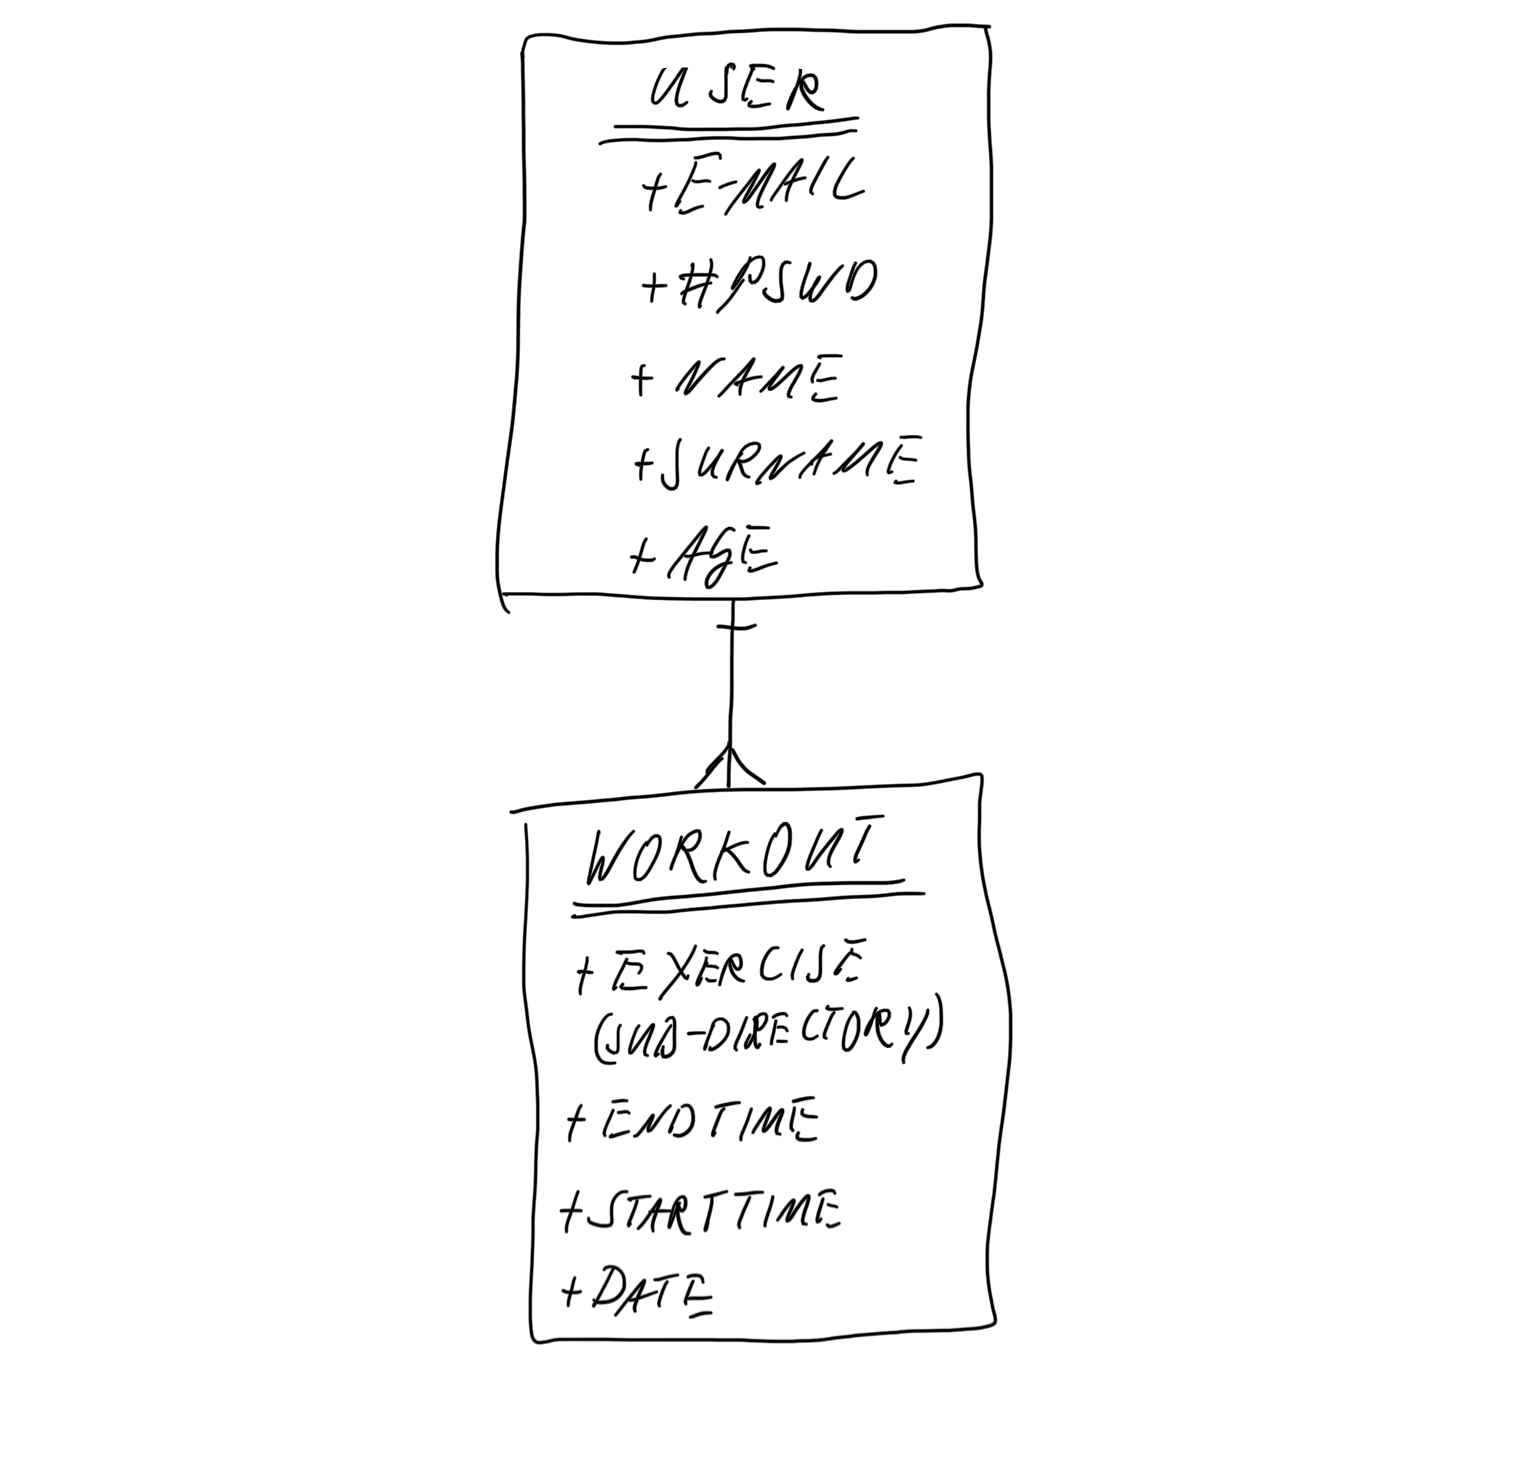 USER
+E-MAIL
+#PSWD
+ NAME
+SURNAME
+ AGE
WORKOUT
+ EXERCISE
(SUB-DIRECTORY)
+ ENDTIME
+STARTTIME
+DATE